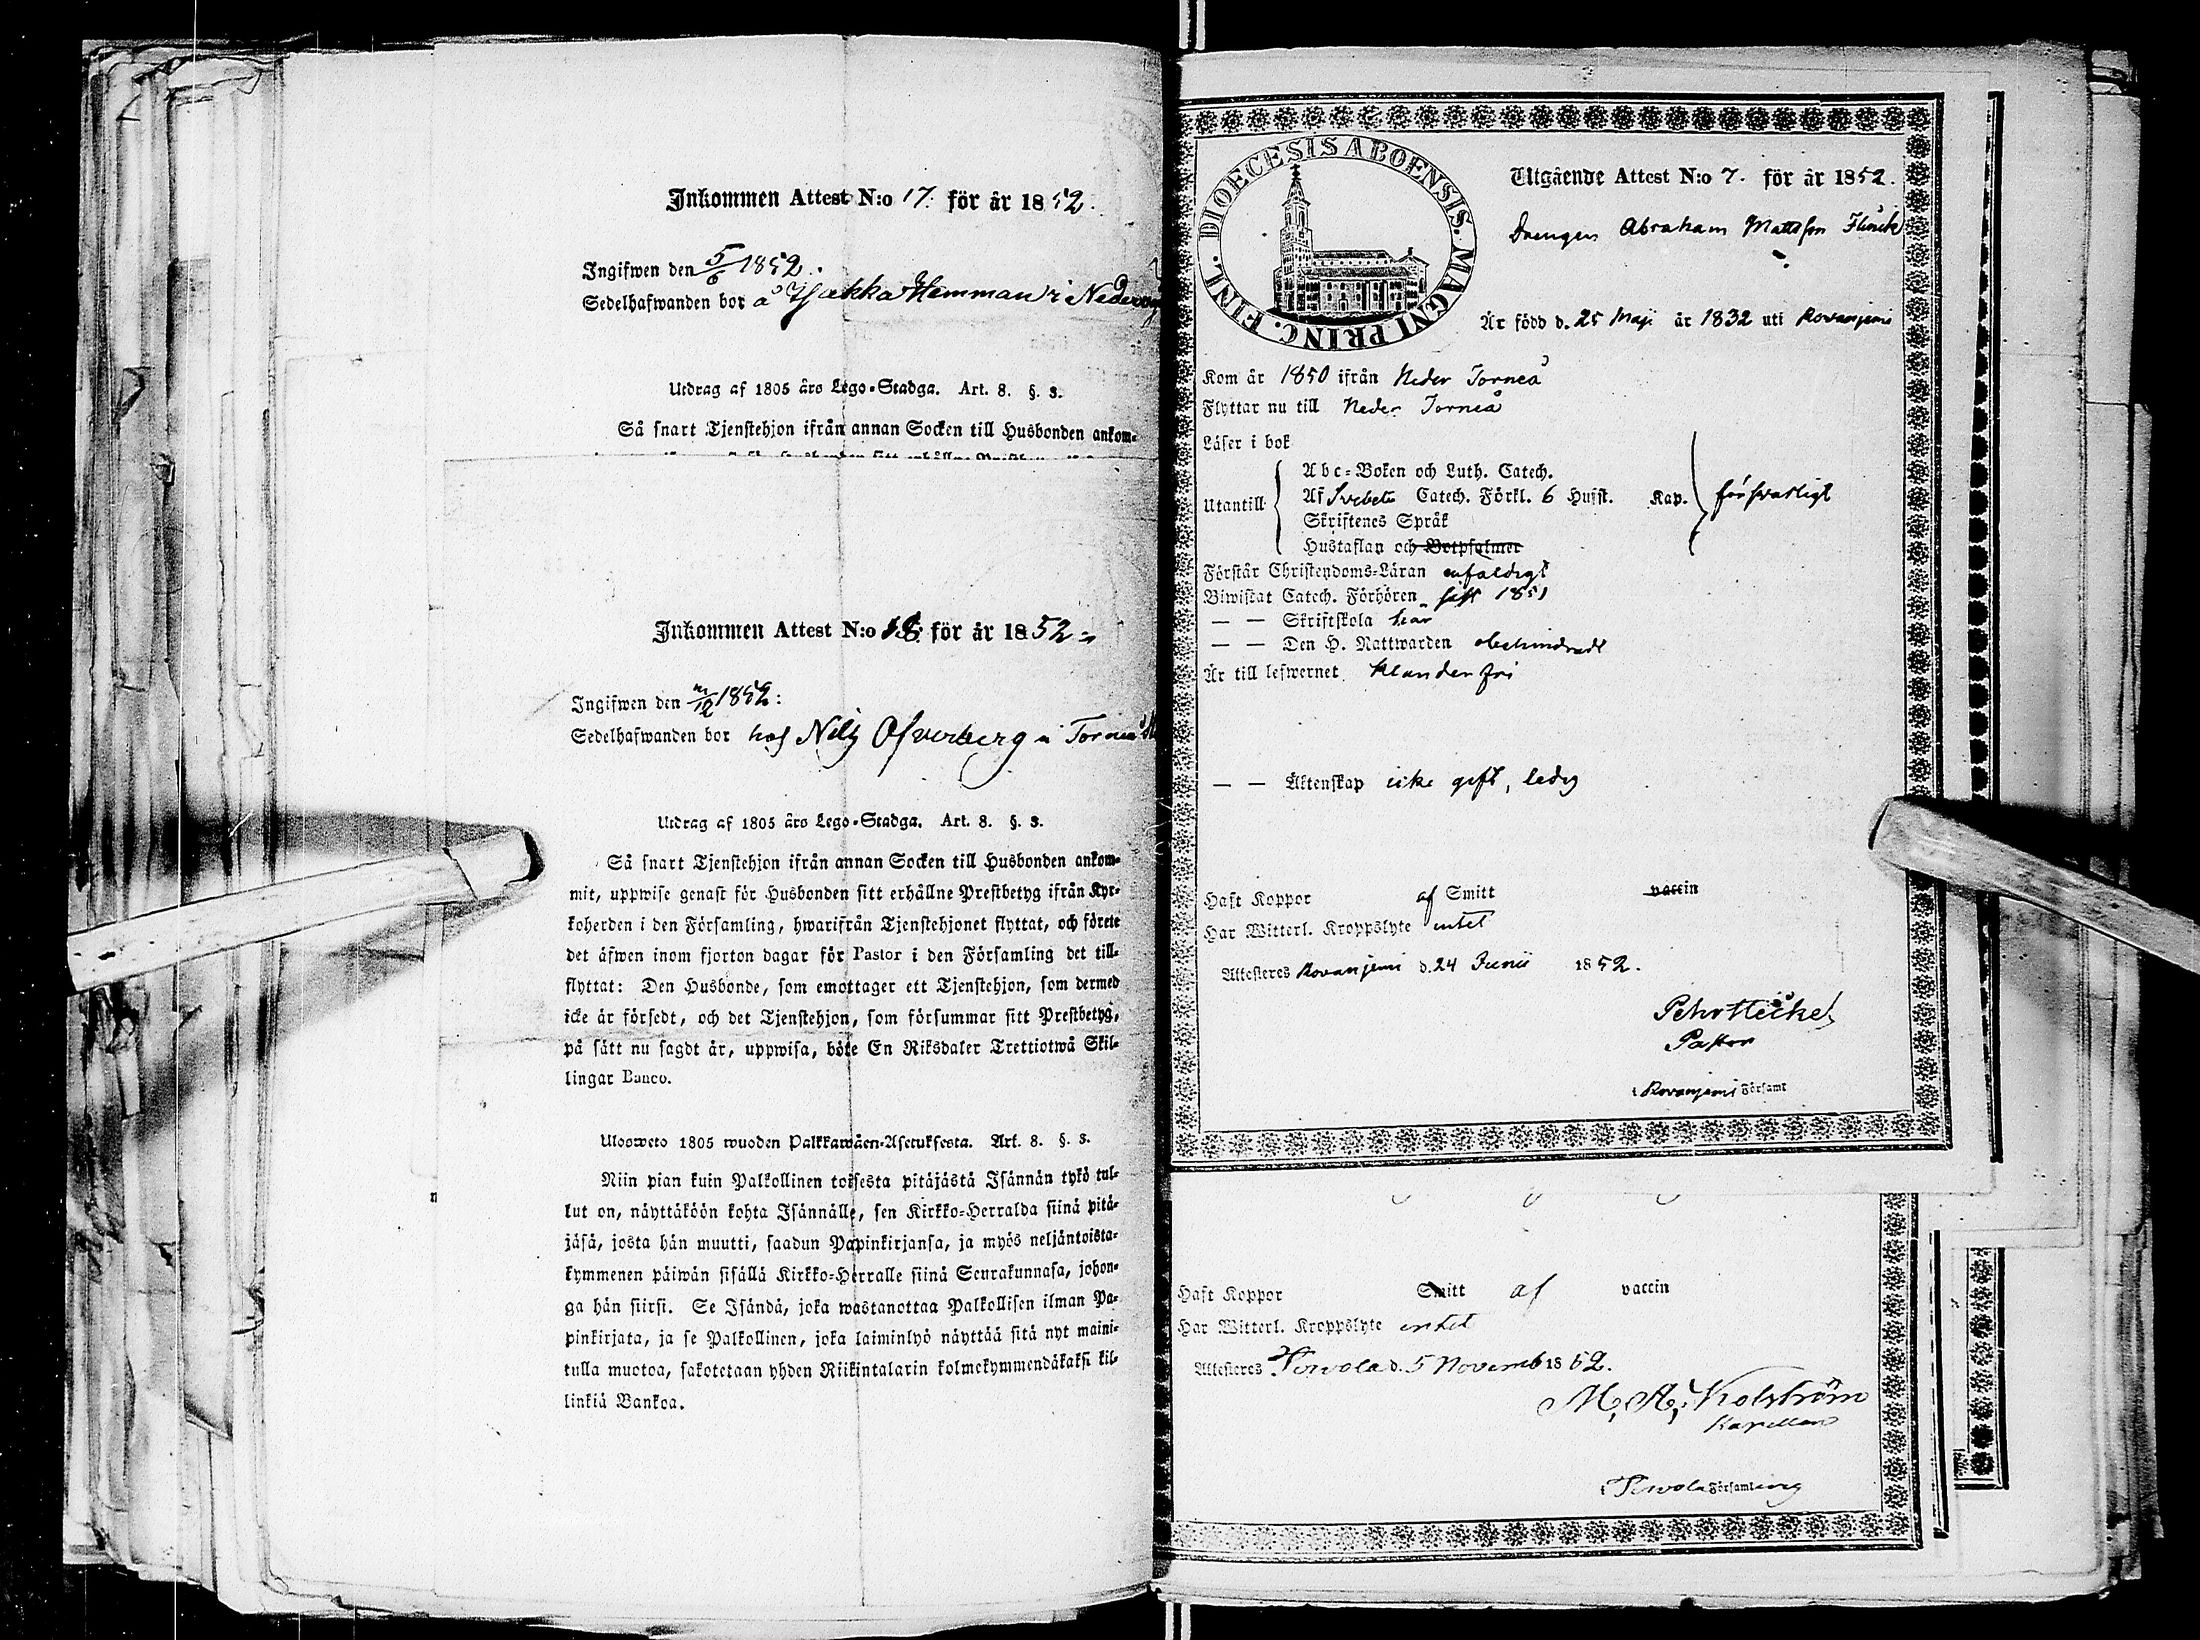 Inkommen Attest N:o 17. för år 1852.
Ingifwen den 5/6 1852.
Sedelhafwanden bor å Hemman i
Utdrag af 1805 års Lego-Stadga. Art. 8. §. 3.
Så snart Tjenstehjon ifrån annan Socken till Husbonden ankom-
Inkommen Attest N:o 18 för år 1852
Ingifwen den 1852:
Sedelhafwanden bor hos Nils Ofverberg i Torneå
Utdrag af 1805 års Lego-Stadga. Art. 8. §. 3.
Så snart Tjenstehjon ifrån annan Socken till Husbonden ankom-
mit, uppwise genast för Husbonden sitt erhållne Prestbetyg ifrån Kyr-
koherden i den Församling, hwarifrån Tjenstehjonet flyttat, och förete
det äfwen inom fjorton dagar för Pastor i den Församling det till-
flyttat: Den Husbonde, som emottager ett Tjenstehjon, som dermed
icke är försedt, och det Tjenstehjon, som försummar sitt Prestbetyg,
på sätt nu sagdt är, uppwisa, böte En Riksdaler Trettiotwå Skil-
lingar Banco.
Ulosweto 1805 wuoden Palkkawäen-Asetuksesta. Art. 8. §. 3.
Niin pian kuin Palkollinen toisesta pitäjästä Isännän tykö tul-
lut on, näyttäköön kohta Isännälle, sen Kirkko-Herralda siinä pitä-
jäsä, josta hän muutti, saadun Papinkirjansa, ja myös neljäntoista-
kymmenen päiwän sisällä Kirkko-Herralle siinä Seurakunnasa, johon-
ga hän siirsi. Se Isändä, joka wastanottaa Palkollisen ilman Pa-
pinkirjata, ja se Palkollinen, joka laiminlyö näyttää sitä nyt maini-
tulla muotoa, sakotetaan yhden Riikintalarin kolmekymmendäkaksi kil-
linkiä Bankoa.
DIOECESIS ABOENSIS. MAGNI PRINC. FINL.
Utgående Attest N:o 7. för år 1852.
Drengen Abraham Mattsson Flinck
Är född d. 25 Maji år 1832 uti Rovanjemi
Kom år 1850 ifrån Neder Torneå
Flyttar nu till Neder Torneå
Läser i bok
Utantill
Abc-Boken och Luth. Catech.
Af Svebelii Catech. Förkl. 6 Hufst. Kap. försvarligt
Skriftenes Språk
Hustaflan och Botpsalmer
Förstår Christendoms-Läran enfaldigt
Biwistat Catech. Förhören sist 1851
— — Skriftskola här
— — Den H. Nattwarden obehindradt
Är till lefwernet klanderfri
— — Äktenskap icke gift, ledig
Haft Koppor af Smitt vaccin
Har Witterl. Kroppslyte intet
Attesteres Rovanjemi d. 24 Junii 1852.
Pehr Heickel
Pastor
i Rovanjemi Församl
Haft Koppor Smitt af vaccin
Har Witterl. Kroppslyte intet
Attesteres Terwola d. 5 Novemb 1852.
M. A. Kolström
Kapellan
i Terwola Församling